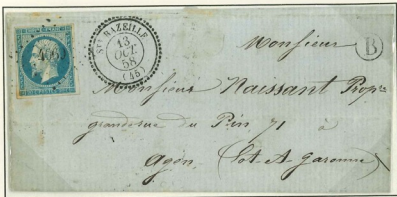 Ste BAZEILLE
13
OCT.
58
(45)
Monsieur
B
Monsieur Naissant Prop.re
grande rue du Pin 71 à
Agen (Lot-et-Garonne)